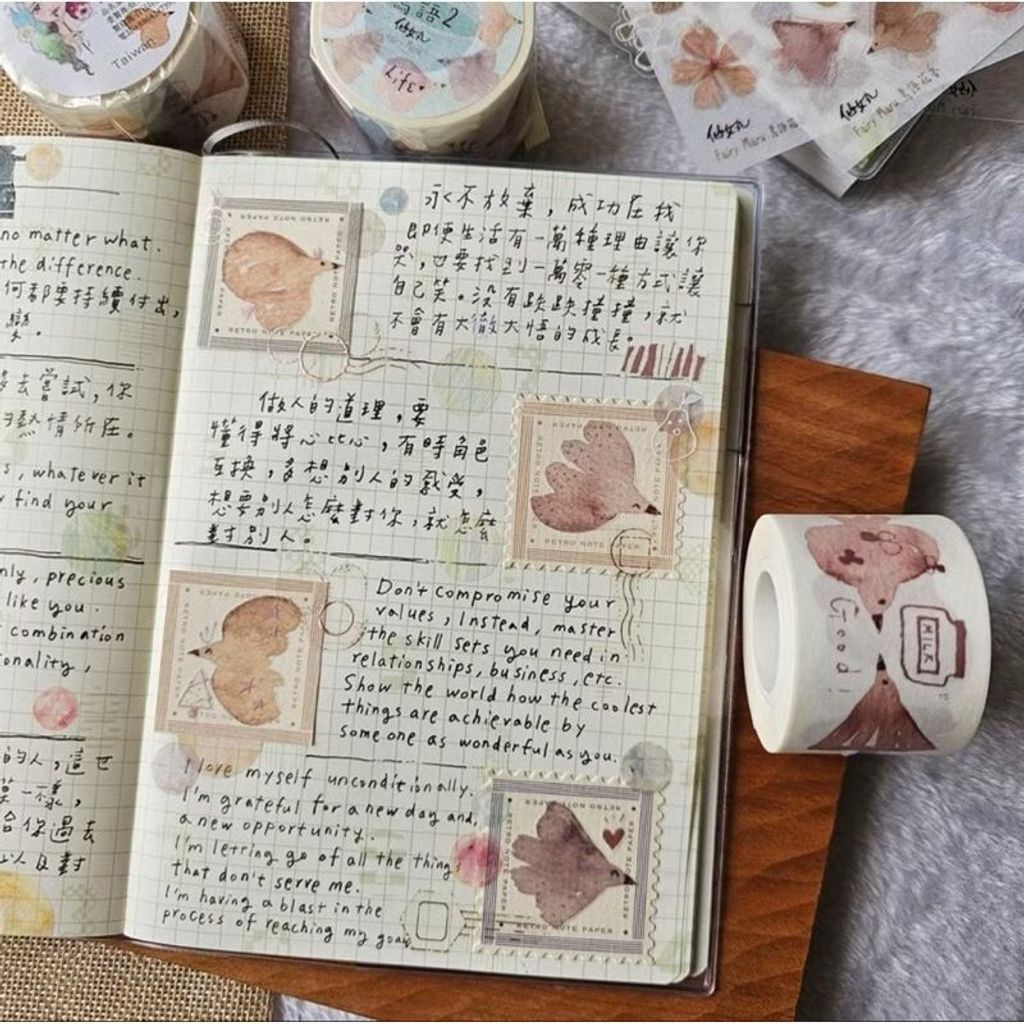 Taiwan
鳥語2
仙女丸
Fairy Maru 鳥語花香
仙女丸
Fairy Maru 鳥語花香
no matter what.
the difference.
何都要持續付出,
變。
多去嘗試,你
的熱情所在。
s, whatever it
find your
nly, precious
like you.
combination
onality,
的人,這世
一樣,
給你過去
以及對
永不放棄,成功在我
即便生活有一萬種理由讓你
哭,也要找到一萬零一種方式讓
自己笑。沒有跌跌撞撞,就
不會有大徹大悟的成長。
RETRO NOTE PAPER
做人的道理,要
懂得將心比心,有時角色
互換,多想別人的感受,
想要別人怎麼對你,就怎麼
對別人。
RETRO NOTE PAPER
Don't compromise your
values, Instead, master
the skill sets you need in
relationships, business, etc.
Show the world how the coolest
things are achievable by
someone as wonderful as you.
RETRO NOTE PAPER
I love myself unconditionally.
I'm grateful for a new day and,
a new opportunity.
I'm letting go of all the thing
that don't serve me.
I'm having a blast in the
process of reaching my goal
RETRO NOTE PAPER
Good!
MILK